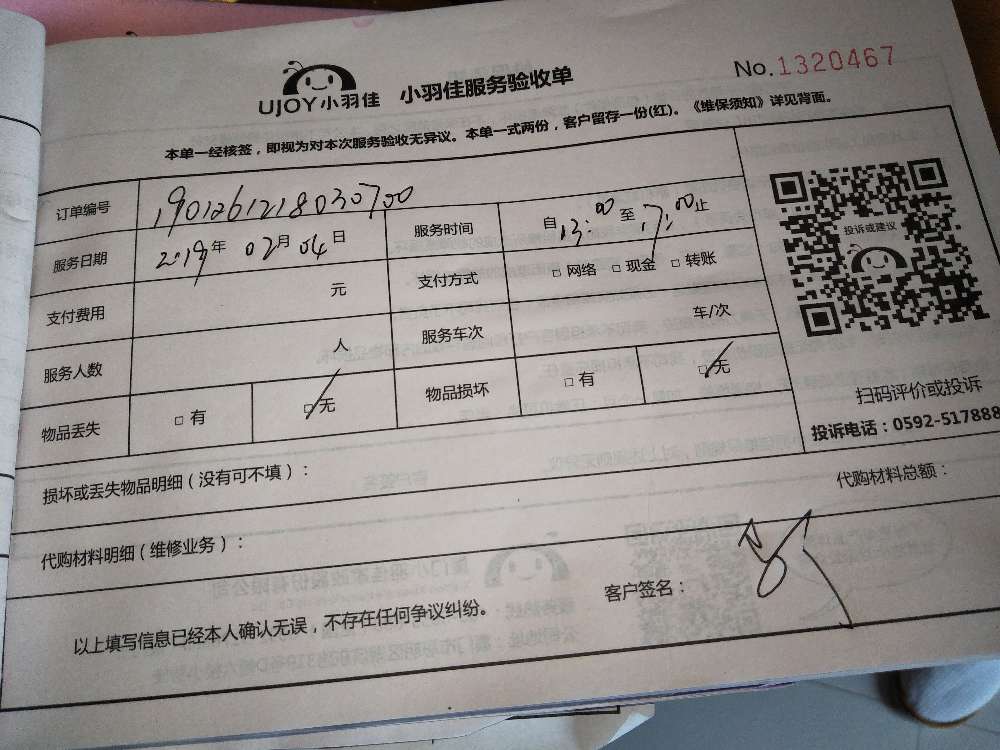 UJOY小羽佳 小羽佳服务验收单 No.1320467
本单一经核签，即视为对本次服务验收无异议。本单一式两份，客户留存一份(红)。《维保须知》详见背面。
订单编号 1901261218030700
服务日期 2019年 02月 04日 服务时间 自13:00至17:00止
支付费用 元 支付方式 □ 网络 □ 现金 □ 转账
服务人数 人 服务车次 车/次
物品丢失 □ 有 □ 无 物品损坏 □ 有 □ 无
投诉或建议
扫码评价或投诉
投诉电话：0592-517888
损坏或丢失物品明细（没有可不填）：
代购材料明细（维修业务）： 代购材料总额：
以上填写信息已经本人确认无误，不存在任何争议纠纷。 客户签名：